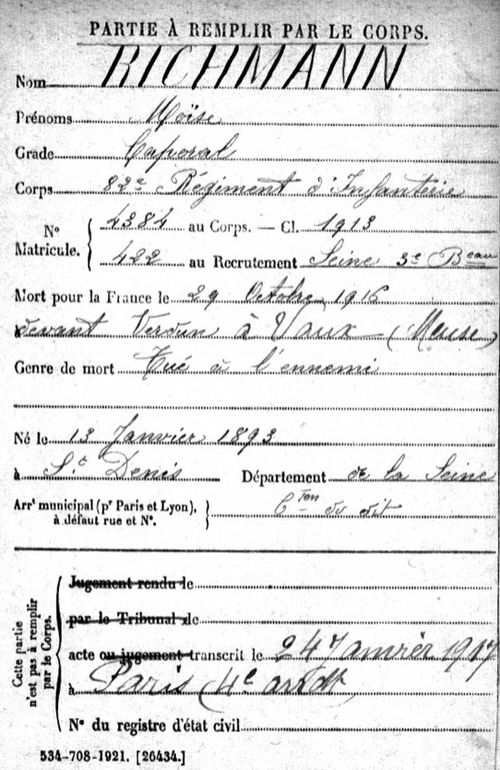 PARTIE À REMPLIR PAR LE CORPS.
Nom RICHMANN
Prénoms Moïse
Grade Caporal
Corps 82e Régiment d'Infanterie
No Matricule. { 4384 au Corps. — Cl. 1913
422 au Recrutement Seine 3e Beau
Mort pour la France le 29 Octobre 1916
devant Verdun à Vaux (Meuse)
Genre de mort Tué à l'ennemi
Né le 13 Janvier 1893
à St Denis Département de la Seine
Arrt municipal (pr Paris et Lyon), à défaut rue et No. } Cton du dit
Cette partie n'est pas à remplir par le Corps.
Jugement rendu le
par le Tribunal de
acte ou jugement transcrit le 24 Janvier 1917
à Paris (4e arrdt)
No du registre d'état civil
534-708-1921. [26434.]